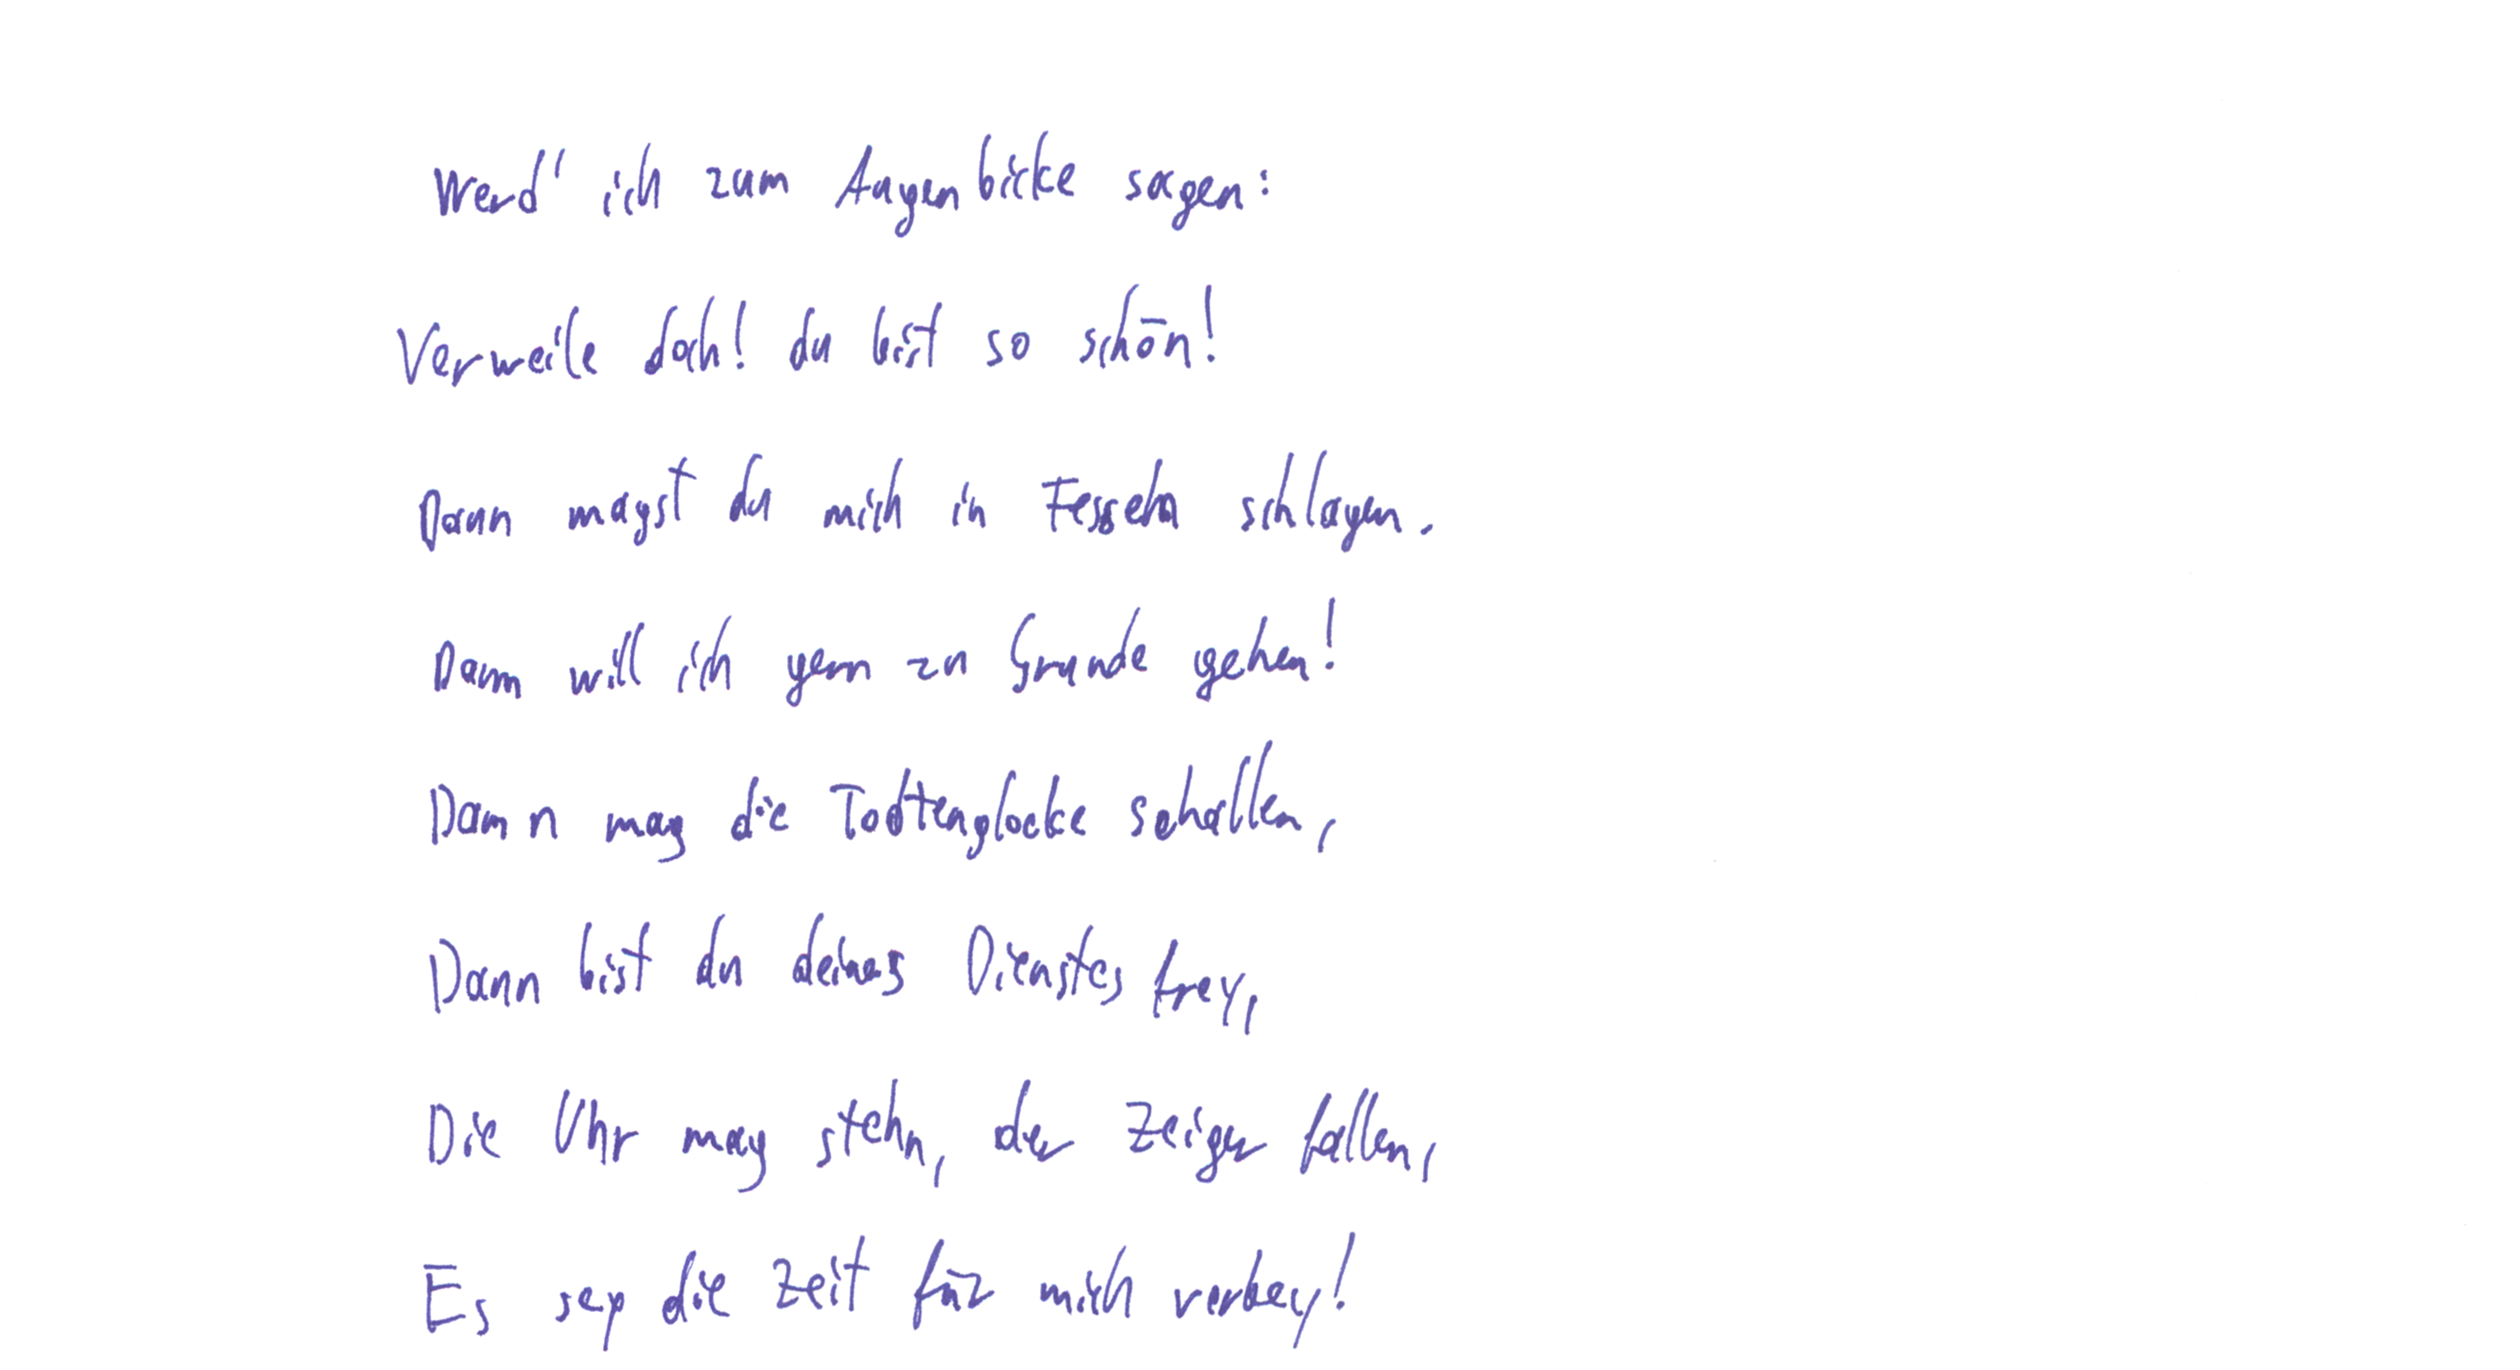 Werd' ich zum Augenbicke sagen:
Verweile doch! du bist so schön!
Dann magst du mich in Fesseln schlagen.
Dann will ich gern zu Grunde gehen!
Dann mag die Todtenglocke schallen,
Dann bist du deines Dienstes frey,
Die Uhr mag stehn, der Zeiger fallen,
Es sey die Zeit für mich verbey!